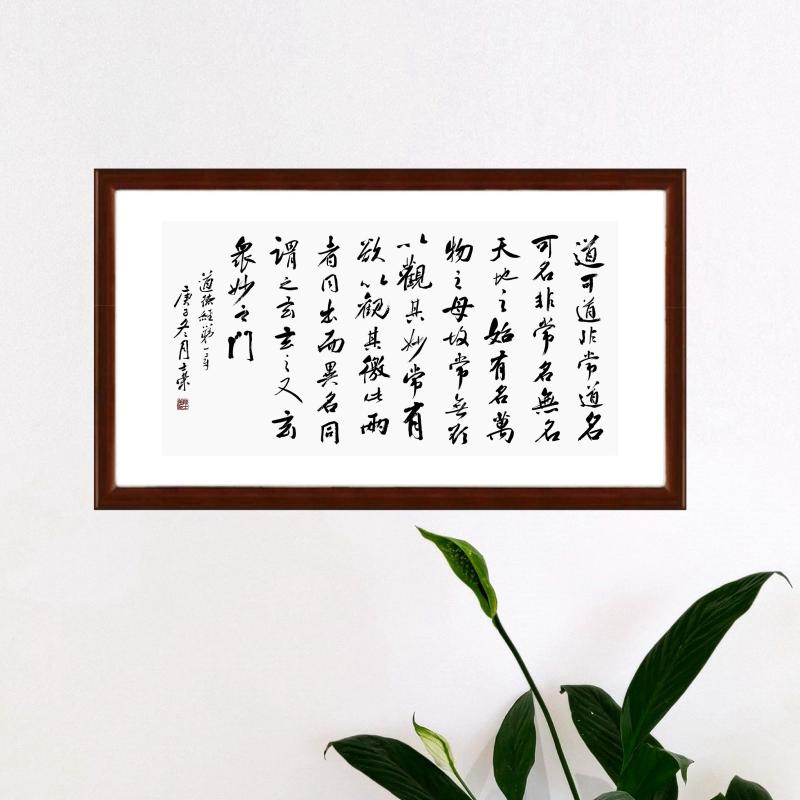 道可道非常道名
可名非常名無名
天地之始有名萬
物之母故常無欲
以觀其妙常有
欲以觀其徼此兩
者同出而異名同
謂之玄玄之又玄
眾妙之門
道德經第一章
庚子冬月